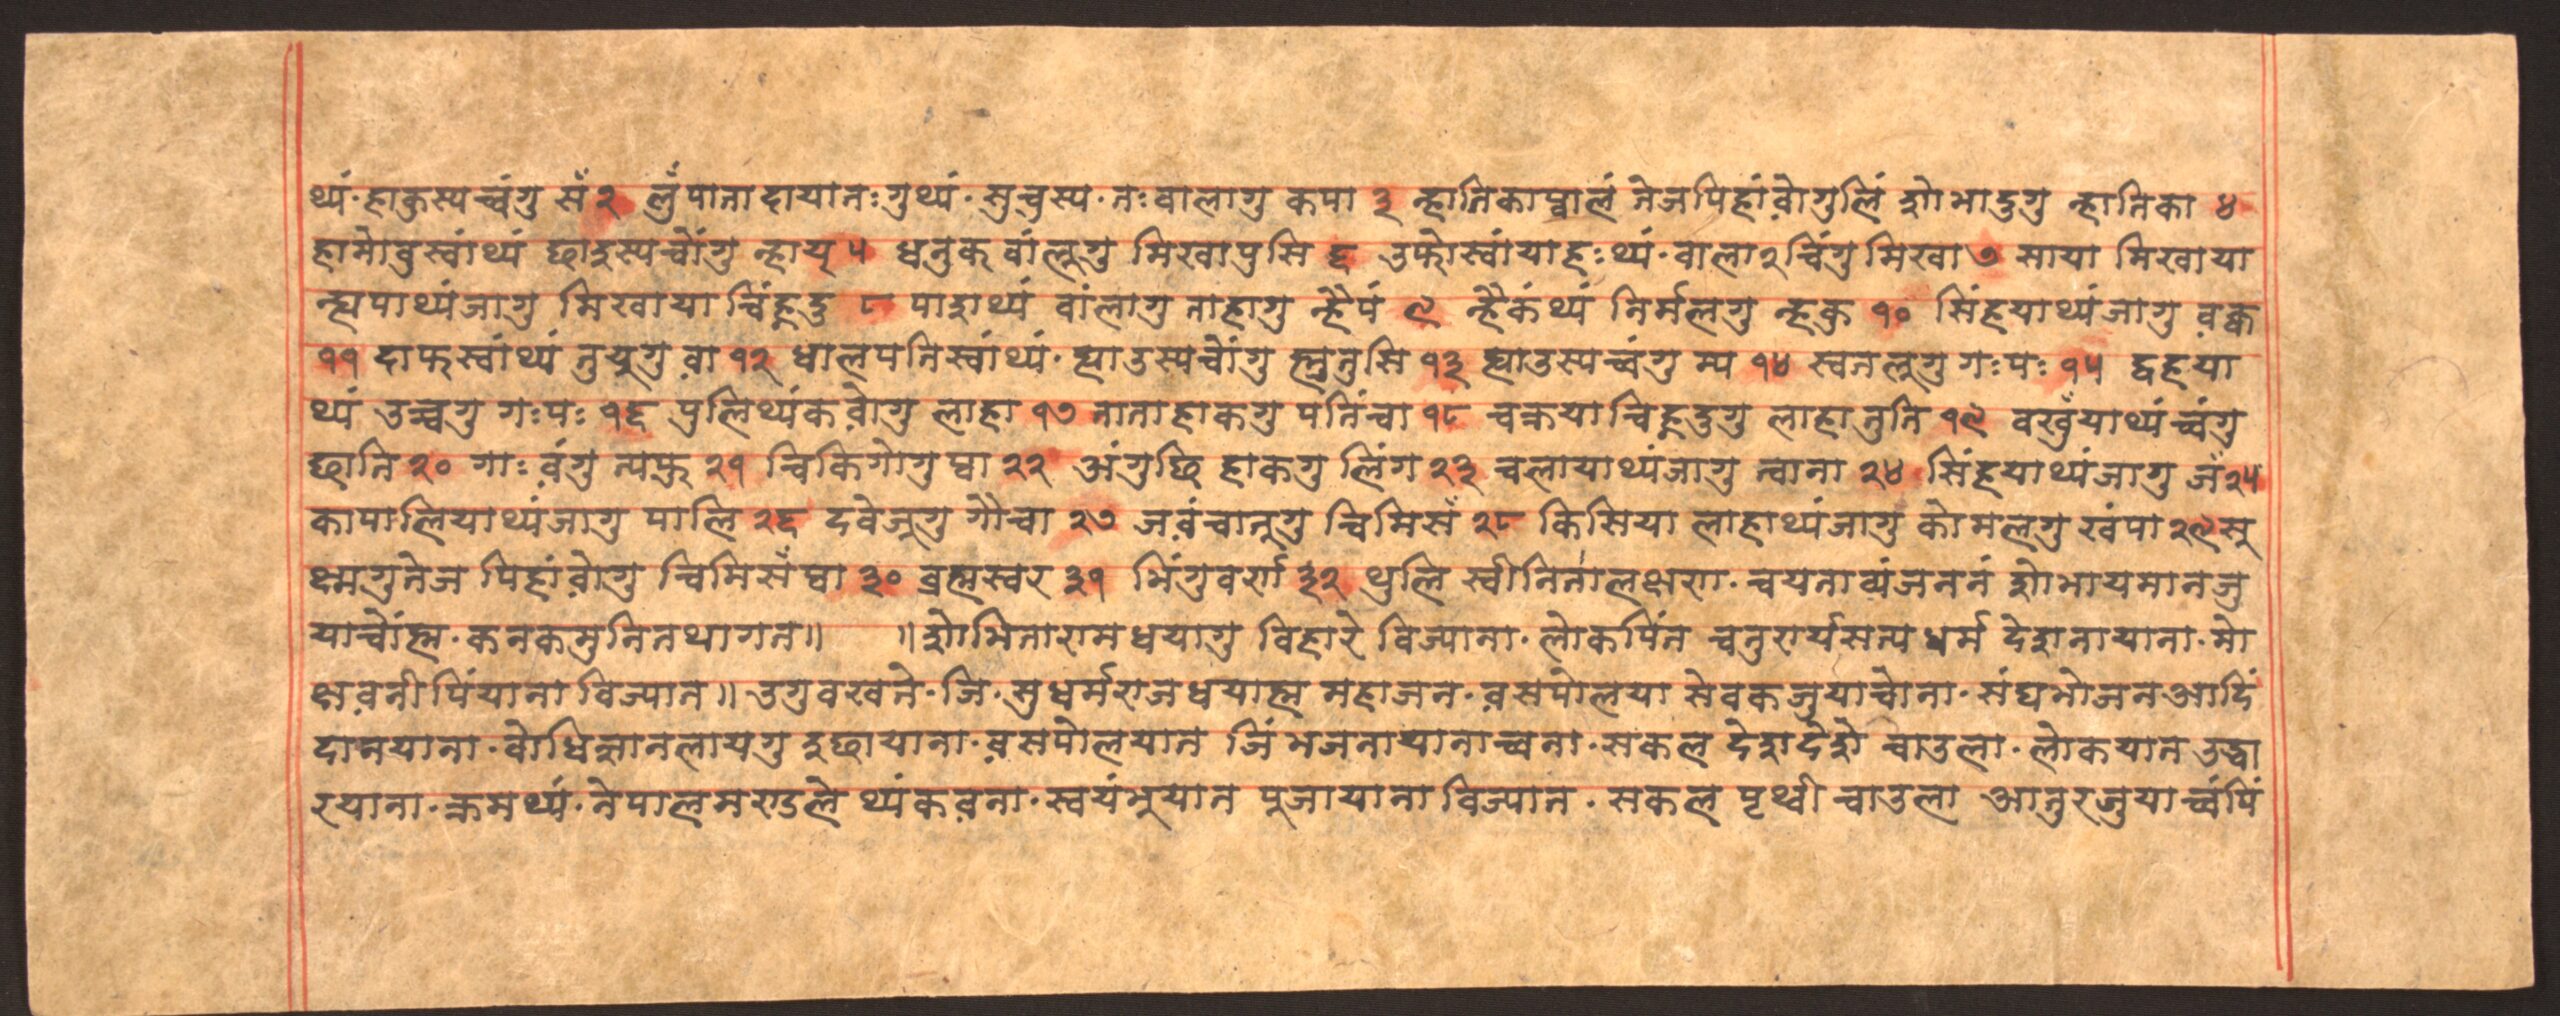 थ्यं॰हाकुस्यच्वंगु सँ २ लुँपाताछायातःगुथ्यं॰सुचुस्य॰तःबालागु कपा ३ न्हातिकाप्वालं तेजपिहांवो़गुलिं शोभादुगु न्हातिका ४
हामोबुस्वांथ्यं छाङुस्यंचोंगु न्हाय् ५ धनुक बांलूगु मिखाप्रुसि ६ उफोस्वांयाहःथ्यं॰बाला२चिंगुमिखा ७ साया मिखाया
न्ह्यपाथ्यंजागु मिखाया चिंहूदु ८ पाशथ्यं बांलागु ताहागु न्हैपं ९ न्हैकंथ्यं निर्मलगु न्हकु १० सिंहयाथ्यंजागु व़क्व
११ दाफस्वांथ्यं तुयूगु व़ा १२ धालपतिस्वांथ्यं॰ह्याउस्यचोंगु म्हुतुसि १३ ह्याउस्यच्वंगु म्य १४ स्वतलूगु गःपः १५ द्वहया
थ्यं उच्चगु गःपः १६ पुलिथ्यंकवो़गु लाहा १७ ताताहाकगु पतिंचा १८ चक्रयाचिहूदुगु लाहातुति १९ बखुँयाथ्यंच्वंगु
छाति २० गाःवं़गु त्यफु २१ चिकिगोगुप्वा २२ अंगुछि हाकगु लिंग २३ चलायाथ्यंजागु त्वाना २४ सिंहयाथ्यंजागु जँ २५
कापालियाथ्यंजागु पालि २६ दवेजूगु गौचा २७ जवं़चातूगु चिमिसँ २८ किसिया लाहाथ्यंजागु कोमलगु खंपा २९ सू
क्ष्मगुतेज पिहांवो़गु चिमिसँप्वा ३० ब्रह्मस्वर ३१ भिंगुवर्ण ३२ थुलि स्वीनितालक्षण॰चयताव्यंजननं शोभायमानजु
याचोंह्म॰कनकमुनितथागत॥ ॥शोभितारामधयागु विहारे विज्याना॰लोकपिंत चतुरार्यसत्य धर्म देशनायाना॰मो
क्षव़नीपिंयाना विज्यात॥उगुबखते॰जि॰सुधर्मराजधयाह्म महाजन॰व़सपोलया सेवकजुयाचोना॰संघभोजनआदिं
दानयाना॰बोधिज्ञानलायगु इछायाना॰व़सपोलयात जिं भजनायानाच्वना॰सकल देशदेशे चाउला॰लोकयात उद्धा
रयाना॰क्रमथ्यं॰नेपालमण्डले थ्यंकव़ना॰स्वयंभुयात पुजायाना विज्यात॰सकल पृथ्वी चाउला आतुरजुयाच्वंपिं